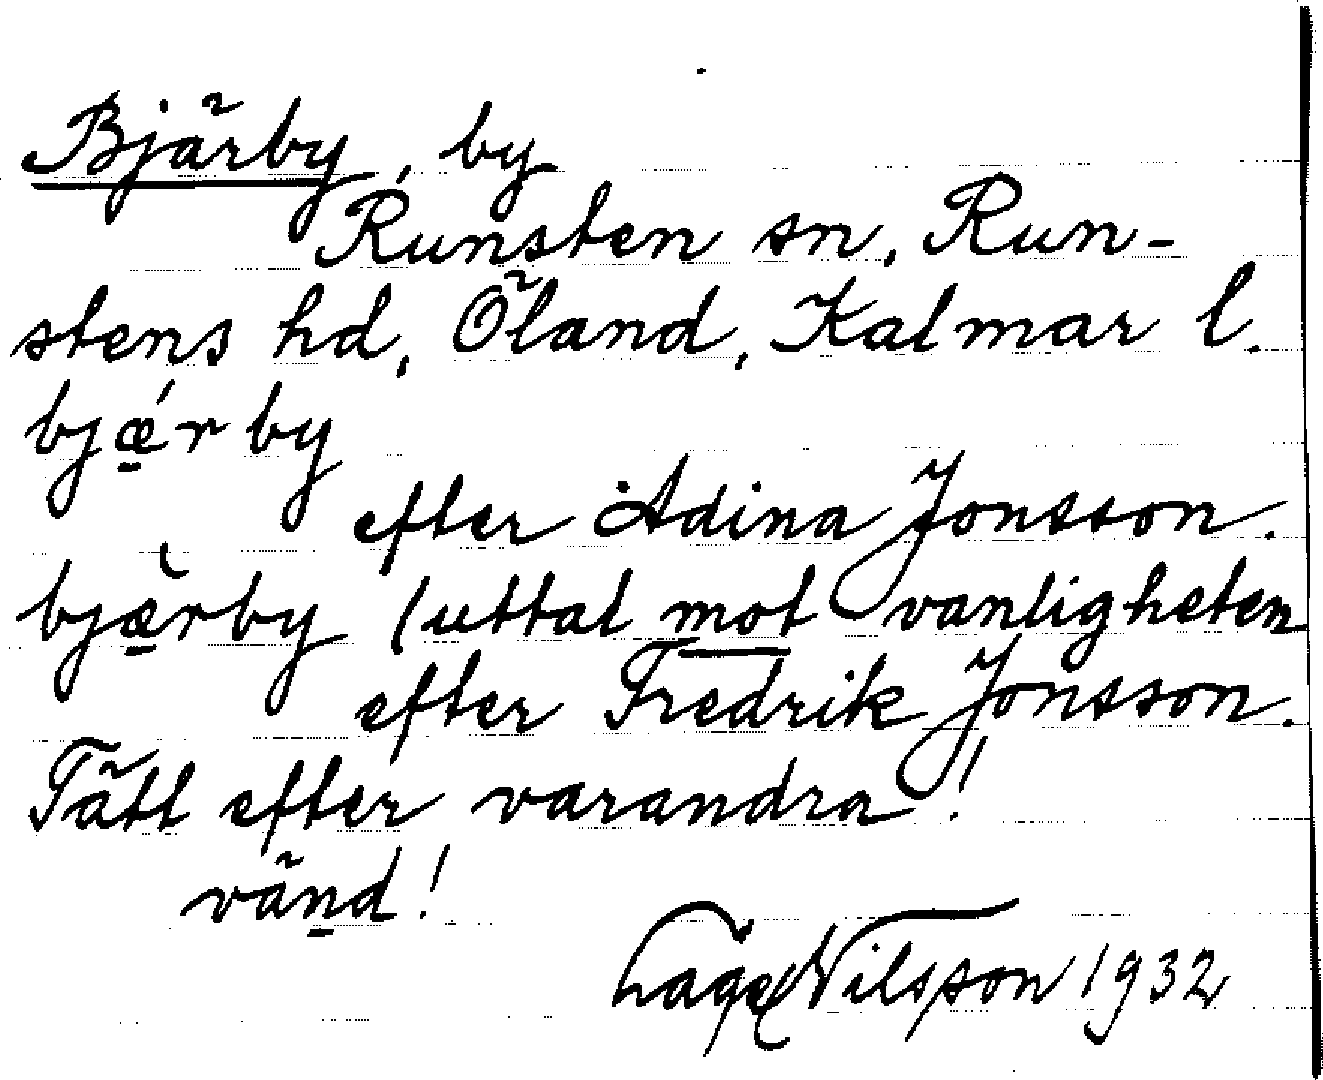 Bjärby, by
Runsten sn, Run-
stens hd, Öland, Kalmar l.
bjǽ̱r by
efter Adina Jonsson.
bjæ̱̆rby (uttal mot vanligheten
efter Fredrik Jonsson.
Tätt efter varandra!
vänd!
Nilsson 1932